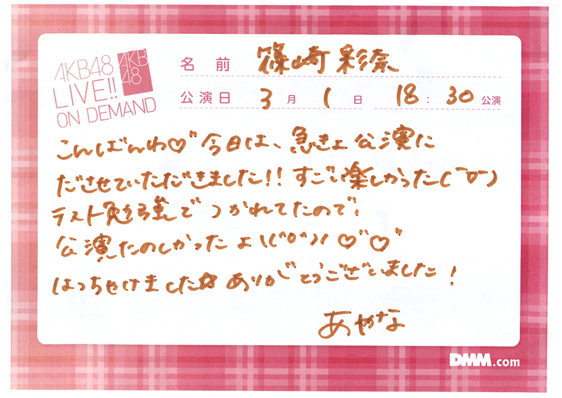 AKB48
LIVE!!
ON DEMAND
AKB
48
名前 篠崎彩奈
公演日 3月1日 18:30公演
こんばんわ♡ 今日は、急きょ公演に
ださせていただきました!! すごく楽しかった(¯▽¯)
テスト勉強でつかれてたので、
公演たのしかったよ\(^o^)/ ♡♡
はっちゃけました☆ ありがとうございました!
あやな
DMM.com